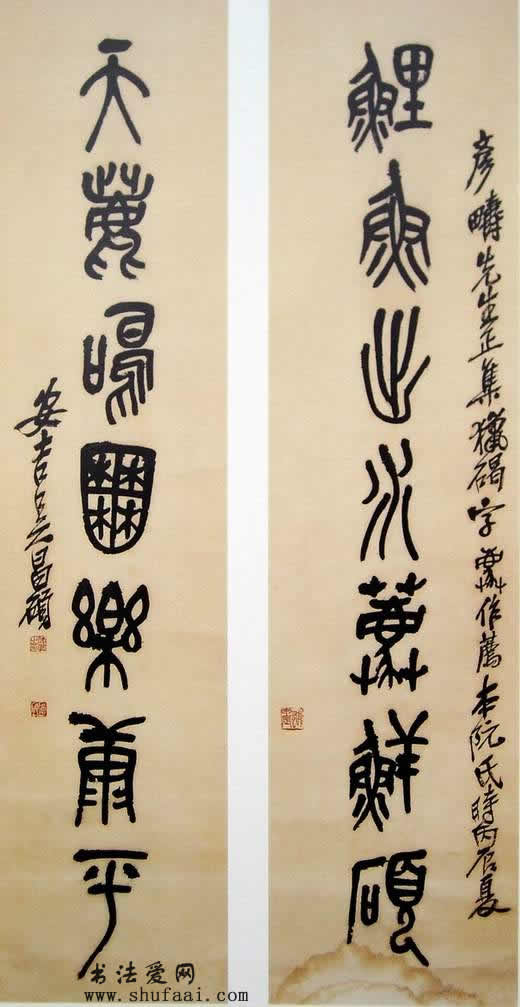 鯉魚出水薦鮮碩
彥疇先生正集獵碣字作薦本阮氏時丙辰夏
天鹿鳴囿樂康平
安吉吳昌碩
书法爱网
www.shufaai.com